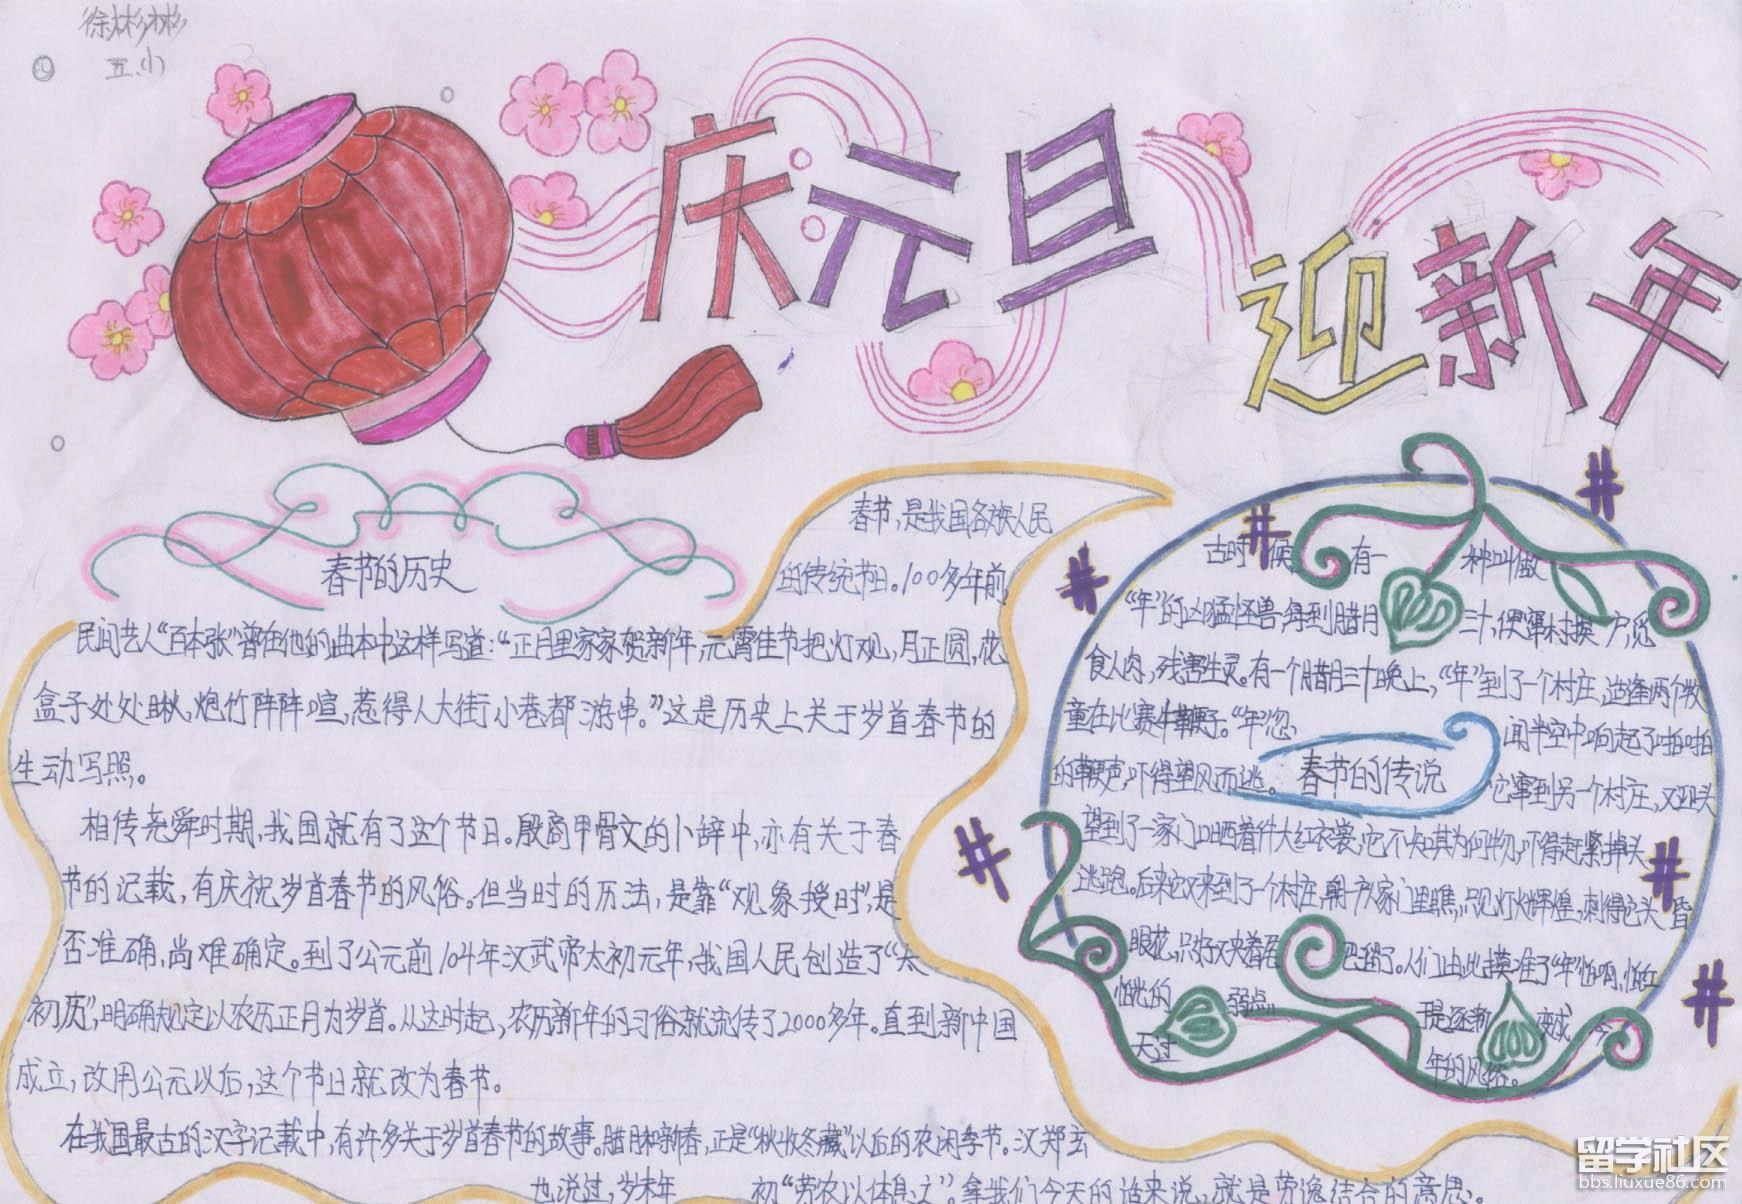 徐彬彬
五.(1)
庆元旦
迎新年
春节的历史
春节,是我国各族人民
的传统节日。100多年前
民间艺人“百本张”曾在他的曲本中这样写道:“正月里家家贺新年,元霄佳节把灯观,月正圆,花
盒子处处瞅,炮竹阵阵喧,惹得人大街小巷都游串。”这是历史上关于岁首春节的
生动写照。
相传尧舜时期,我国就有了这个节日。殷商甲骨文的卜辞中,亦有关于春
节的记载,有庆祝岁首春节的风俗。但当时的历法,是靠“观象授时”,是
否准确,尚难确定。到了公元前104年汉武帝太初元年,我国人民创造了“太
初历”,明确规定以农历正月为岁首。从这时起,农历新年的习俗就流传了2000多年。直到新中国
成立,改用公元以后,这个节日就改为春节。
在我国最古的汉字记载中,有许多关于岁首春节的故事。腊月和新春,正是“秋收冬藏”以后的农闲季节。汉郑玄
也说过,岁末年 初“劳农以休息之”。拿我们今天的话来说,就是劳逸结合的意思。
古时候 有一 种叫做
“年”的凶猛怪兽,每到腊月 三十,便窜村挨户,觅
食人肉,残害生灵。有一个腊月三十晚上,“年”到了一个村庄,适逢两个牧
童在比赛牛鞭子。“年”忽 闻半空中响起了啪啪
的鞭声,吓得望风而逃。 春节的传说 它窜到另一个村庄,又迎头
望到了一家门口晒着件大红衣裳,它不知其为何物,吓得赶紧掉头
逃跑。后来它又来到了一个村庄,朝一户人家门里瞧,只见灯火辉煌,刺得它头昏
眼花,只好又夹着尾 巴溜了。人们由此摸准了“年”怕响,怕红
怕光的 弱点 于是逐渐 变成 今
天过 年的风俗。
留学社区
bbs.liuxue86.com